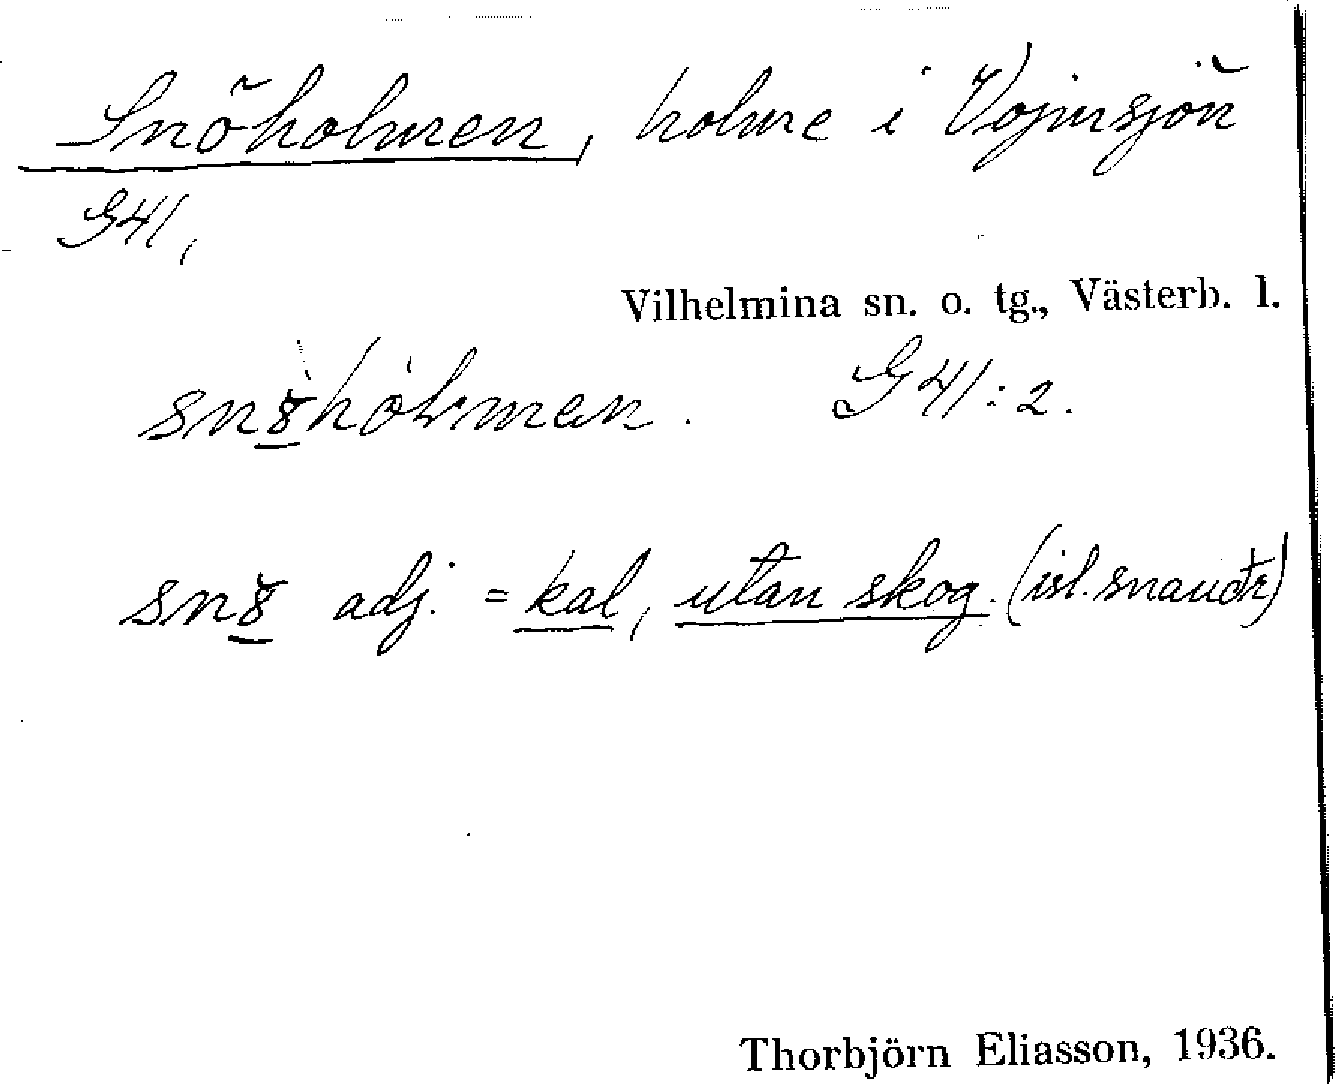 Snöholmen, holme i Vojmsjön
G41,
Vilhelmina sn. o. tg., Västerb. l.
G41:2.
adj. = kal, utan skog. (isl. snauðr)
Thorbjörn Eliasson, 1936.